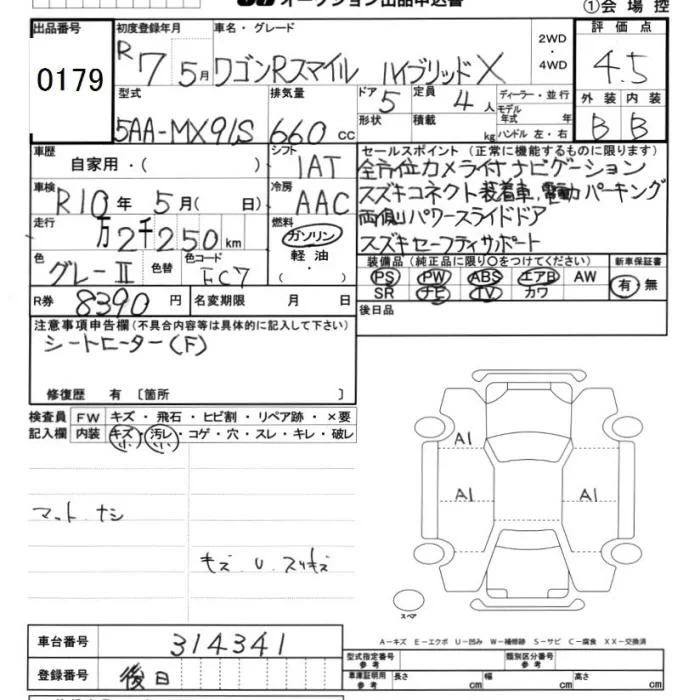 オークション出品申込書
①会場控
出品番号 0179
初度登録年月 R7 5月
車名・グレード ワゴンRスマイル ハイブリッドX
2WD・4WD
評価点 4.5
外装 B 内装 B
型式 5AA-MX91S
排気量 660 cc
ドア 5 定員 4人
形状 積載 kg
ディーラー・並行
モデル年式 年
ハンドル 左・右
車歴 自家用・( )
シフト IAT
車検 R10年 5月( 日)
冷房 AAC
走行 万2千250km
燃料 ガソリン 軽油 ( ・ )
色 グレーⅡ 色替 色コード FC7
R券 8390円 名変期限 月 日
セールスポイント (正常に機能するものに限ります)
全方位カメラ付ナビゲーション
スズキコネクト装着車、電動パーキング
両側パワースライドドア
スズキセーフティサポート
装備品 (純正品に限り○をつけてください)
PS PW ABS エアB AW
SR ナビ TV カワ
新車保証書 有・無
後日品
注意事項申告欄 (不具合内容等は具体的に記入して下さい)
シートヒーター(F)
修復歴 有 〔箇所 〕
検査員記入欄
FW キズ・飛石・ヒビ割・リペア跡・×要
内装 キズ・汚レ・コゲ・穴・スレ・キレ・破レ
マット ナシ
キズ U スリキズ
A1
A1
A1
スペア
A-キズ E-エクボ U-凹み W-補修跡 S-サビ C-腐食 XX-交換済
車台番号 314341
登録番号 後日
型式指定番号 参考
類別区分番号 参考
車庫証明用 参考 長さ cm 幅 cm 高さ cm